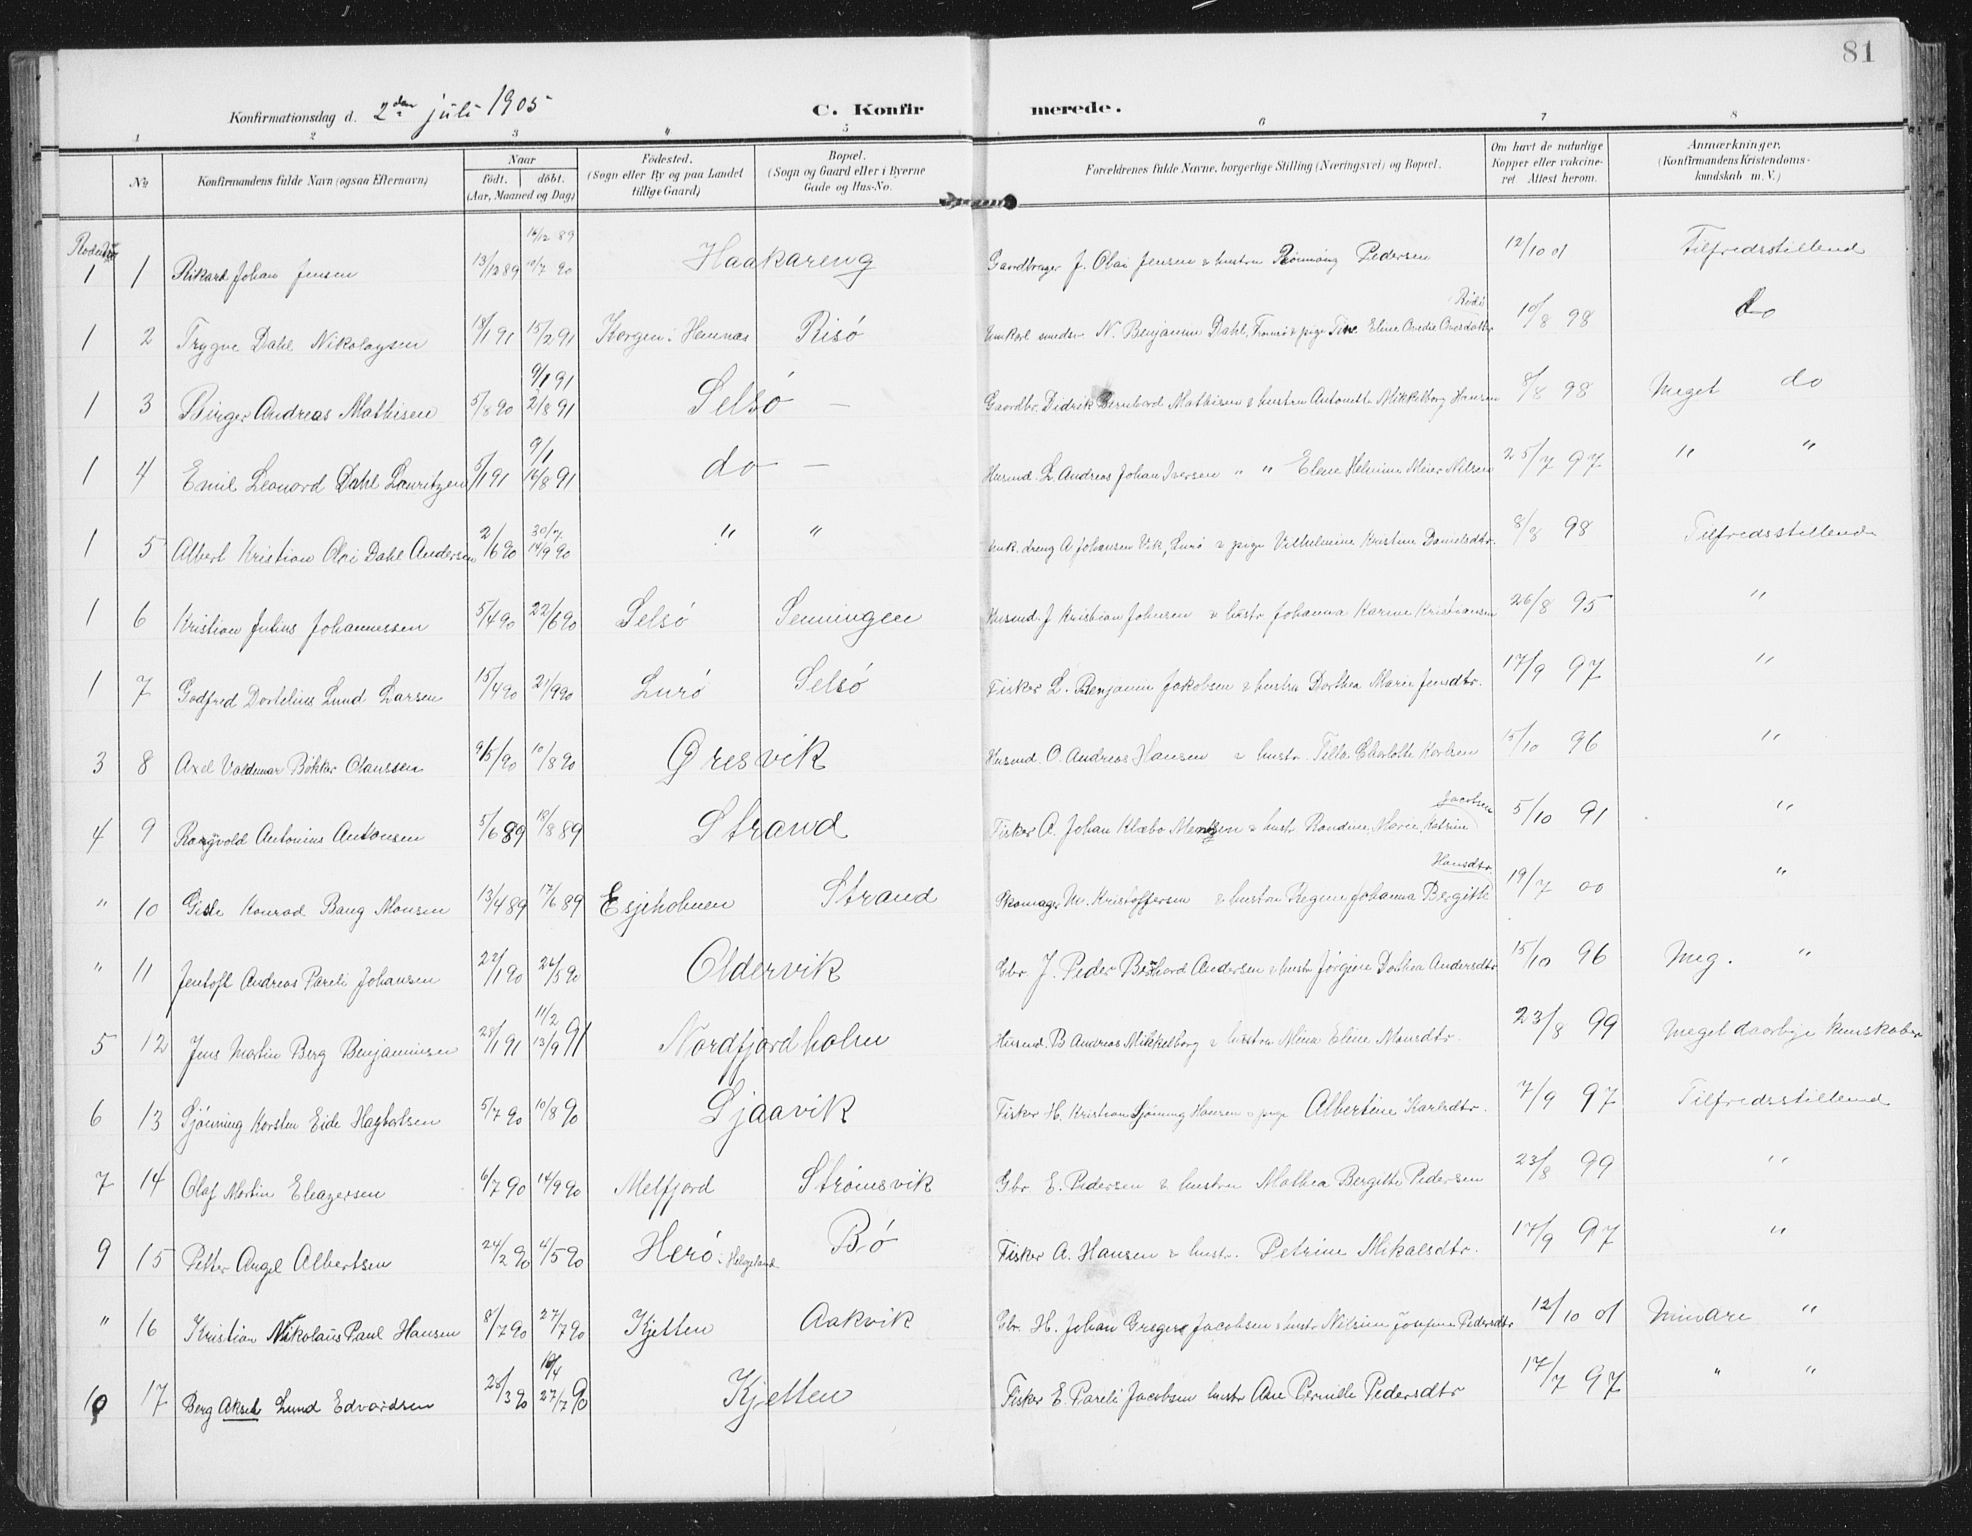 81
Konfirmationsdag d. 2den juli 1905 C. Konfirmerede.
1 2 3 4 5 6 7 8
No. Konfirmandens fulde Navn (ogsaa Efternavn) Naar født. døbt. (Aar, Maaned og Dag) Fødested. (Sogn eller By og paa Landet tillige Gaard) Bopæl. (Sogn og Gaard eller i Byerne Gade og Hus-No. Forældrenes fulde Navne, borgerlige Stilling (Næringsvei) og Bopæl. Om havt de naturlige Kopper eller vakcineret Attest herom. Anmærkninger. (Konfirmandens Kristendomskundskab m. V.)
1 1 Rikard Johan Jensen 13/12 89 14/12 89 10/7 90 Haakareng Gaardbruger J. Olai Jensen & hustru Pedersen 12/10 01 Tilfredsstillend
1 2 Trygve Dahl Nikolaysen 18/1 91 15/2 91 Korgen i Hemnæs Risø N. Benjamin Dahl, & pige Eline Rødø 10/8 98 do
1 3 Birger Andreas Mathisen 5/8 90 9/1 91 2/8 91 Selsø – Gaardbr. Didrik Bernhard Mathisen & hustru Antonette Mikkelborg Hansen 8/8 98 Meget do
1 4 Emil Leonard Dahl Lauritzen 5/1 91 9/1 16/8 91 do – Husmd. L. Andreas Johan Iversen " " Elene Helmine Meier Nilsen 25/7 97 " "
1 5 Albert Kristian Olai Dahl Andersen 2/6 90 30/7 14/9 90 " " Unk. dreng A. Johansen Vik, Lurø & pige Vilhelmine Kristine Danielsdtr. 8/8 98 Tilfredsstillende
1 6 Kristian Julius Johannessen 5/4 90 22/6 90 Selsø Senningen Husmd. J. Kristian Johnsen & hustr. Johanna Karine Kristiansen 26/8 95 "
1 7 Godfred Dortelius Lund Larsen 15/4 90 21/9 90 Lurø Selsø Fisker L. Benjamin Jakobsen & hustru Dorthea Marie Jensdtr. 17/9 97 "
3 8 Axel Valdemar Bøkker Olaussen 9/5 90 10/8 90 Øresvik Husmd. O. Andreas Hansen & hustr. Charlotte Karlsen 15/10 96 "
4 9 Rangvold Antonius Antonsen 5/6 89 18/8 89 Strand Fisker A. Johan Klæbo Mentzen & hustr. Randine Marie Katrine Jacobsen 5/10 91 "
" 10 Gisle Konrad Bang Monsen 13/4 89 17/6 89 Esjeholmen Strand Skomager M. Kristoffersen & hustru Regine Johanna Bergitte Hansdtr. 19/7 00 "
" 11 Jentoft Andreas Pareli Johansen 22/1 90 26/5 90 Oldervik Gbr. J. Peder Bernhard Andersen & hustr Jørgine Dorthea Andersdtr 15/10 96 Meg. "
5 12 Jens Martin Berg Benjaminsen 28/1 91 11/2 13/9 91 Nordfjordholm Husmd. B. Andreas Mikkelborg & hustru Mina Elene Monsdtr. 23/8 99 Meget daarlige kunskaber
6 13 Sjønning Korsten Eide Hagbartsen 5/7 90 10/8 90 Sjaavik Fisker H. Kristian Sjønning Hansen & pige Albertine Karlsdtr. 7/9 97 Tilfredsstillend
7 14 Olaf Martin Eleazersen 6/7 90 14/9 90 Melfjord Strømsvik Gbr. E. Pedersen & hustru Mathea Bergitte Pedersen 23/8 99 "
9 15 Petter Angel Albertsen 24/2 90 4/5 90 Herø i Helgeland Bø Fisker A. Hansen & hustr. Petrine Mikalsdtr. 17/9 97 "
" 16 Kristian Nikolaus Paul Hansen 8/7 90 27/7 90 Kjetten Aakvik Gbr. H. Johan Gregers Jacobsen & hustr Nilsine Josefine Pedersdtr 12/10 01 Mindre "
10 17 Berg Aksel Lund Edvardsen 28/3 90 10/4 27/7 90 Kjetten Fisker E. Pareli Jacobsen hustr Ane Pernille Pedersdtr 17/7 97 " "